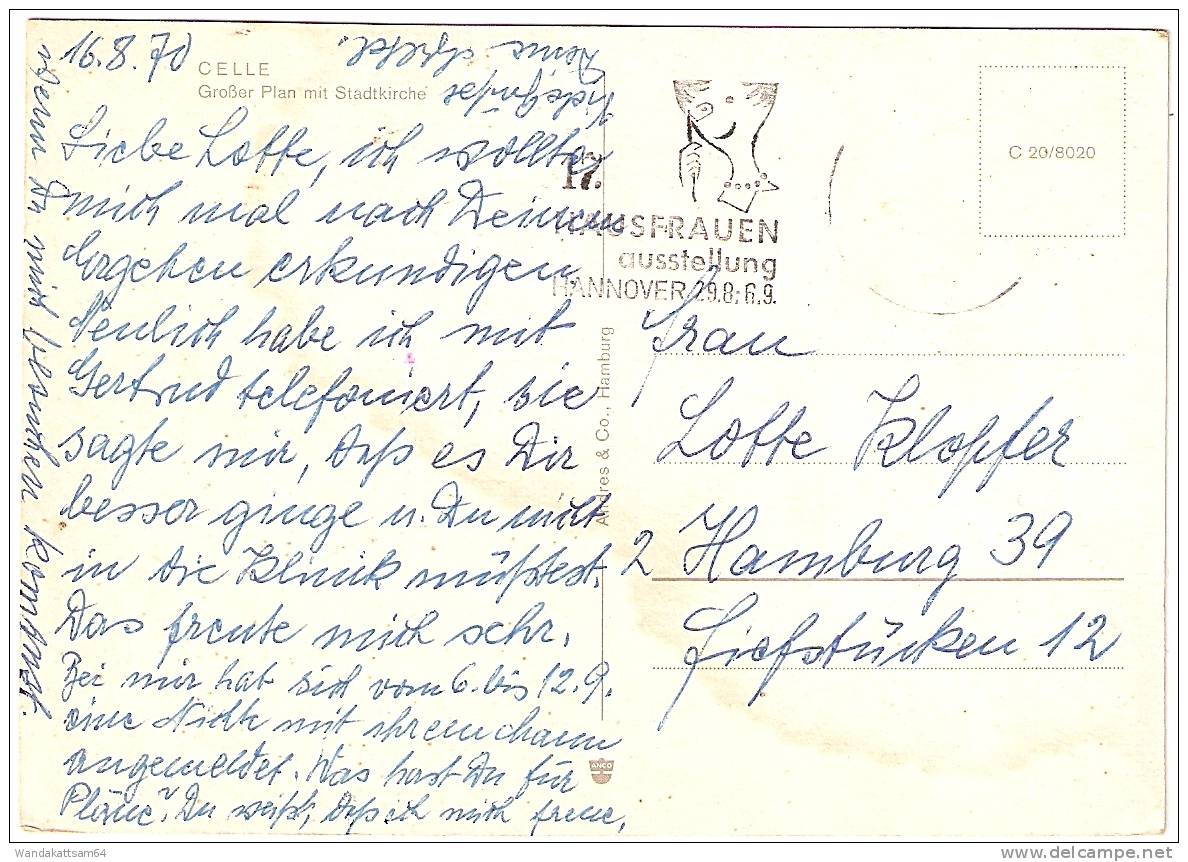 16.8.70
CELLE
Großer Plan mit Stadtkirche
Liebe Lotte, ich wollte
mich mal nach Deinem
Ergehen erkundigen.
Neulich habe ich mit
Gertrud telefoniert, sie
sagte mir, daß es Dir
besser ginge u. Du nicht
in die Klinik müßtest.
Das freute mich sehr.
Bei mir hat sich vom 6. bis 12.9.
eine Nichte mit ihrem Mann
angemeldet. Was hast Du für
Pläne? Du weißt, daß ich mich freue,
wenn Du mich besuchen kommst.
Herzlichst
Deine
17.
HAUSFRAUEN
ausstellung
HANNOVER 29.8.-6.9.
C 20/8020
Andres & Co., Hamburg
Frau
Lotte Klopfer
2 Hamburg 39
Fiefstücken 12
ANCO
Wandakattsam64